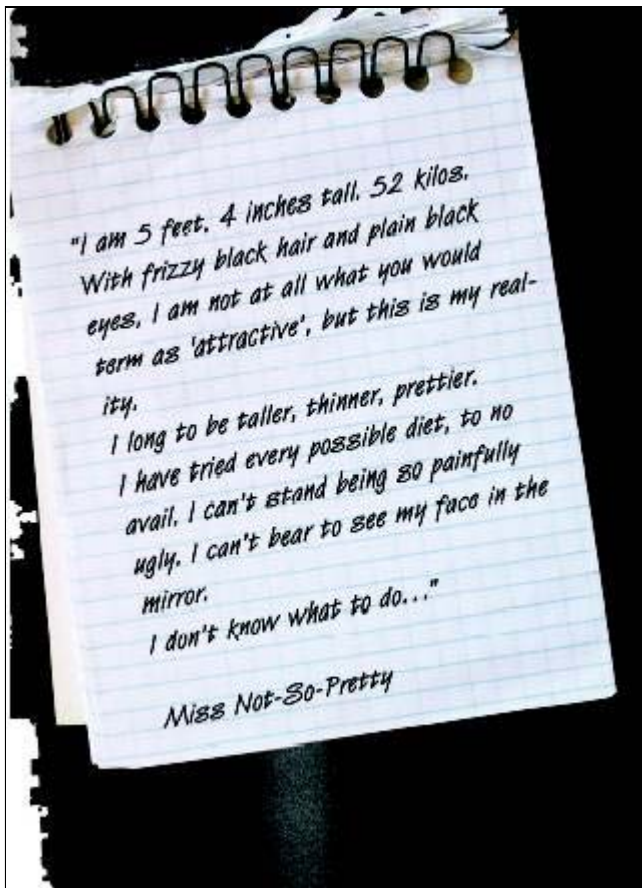 "I am 5 feet. 4 inches tall. 52 kilos.
With frizzy black hair and plain black
eyes, I am not at all what you would
term as 'attractive', but this is my real-
ity.
I long to be taller, thinner, prettier.
I have tried every possible diet, to no
avail. I can't stand being so painfully
ugly. I can't bear to see my face in the
mirror.
I don't know what to do..."
Miss Not-So-Pretty